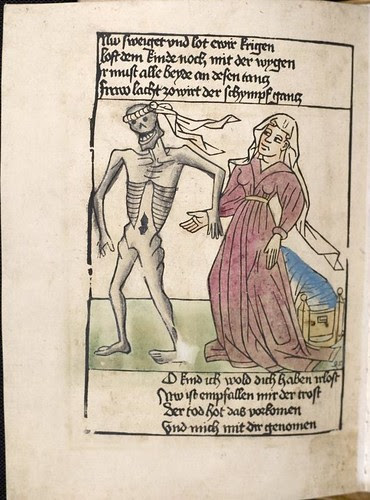 Nw sweiget vnd lot ewir krigen
lost dem kinde noch mit der wygen
Ir must alle beyde an desen tancz
Fraw lacht zo wirt der schympf gancz
O kind ich wold dich haben irlost
Nw ist empfallen mir der trost
Der tod hot das vorkomen
Vnd mich mit dir genomen